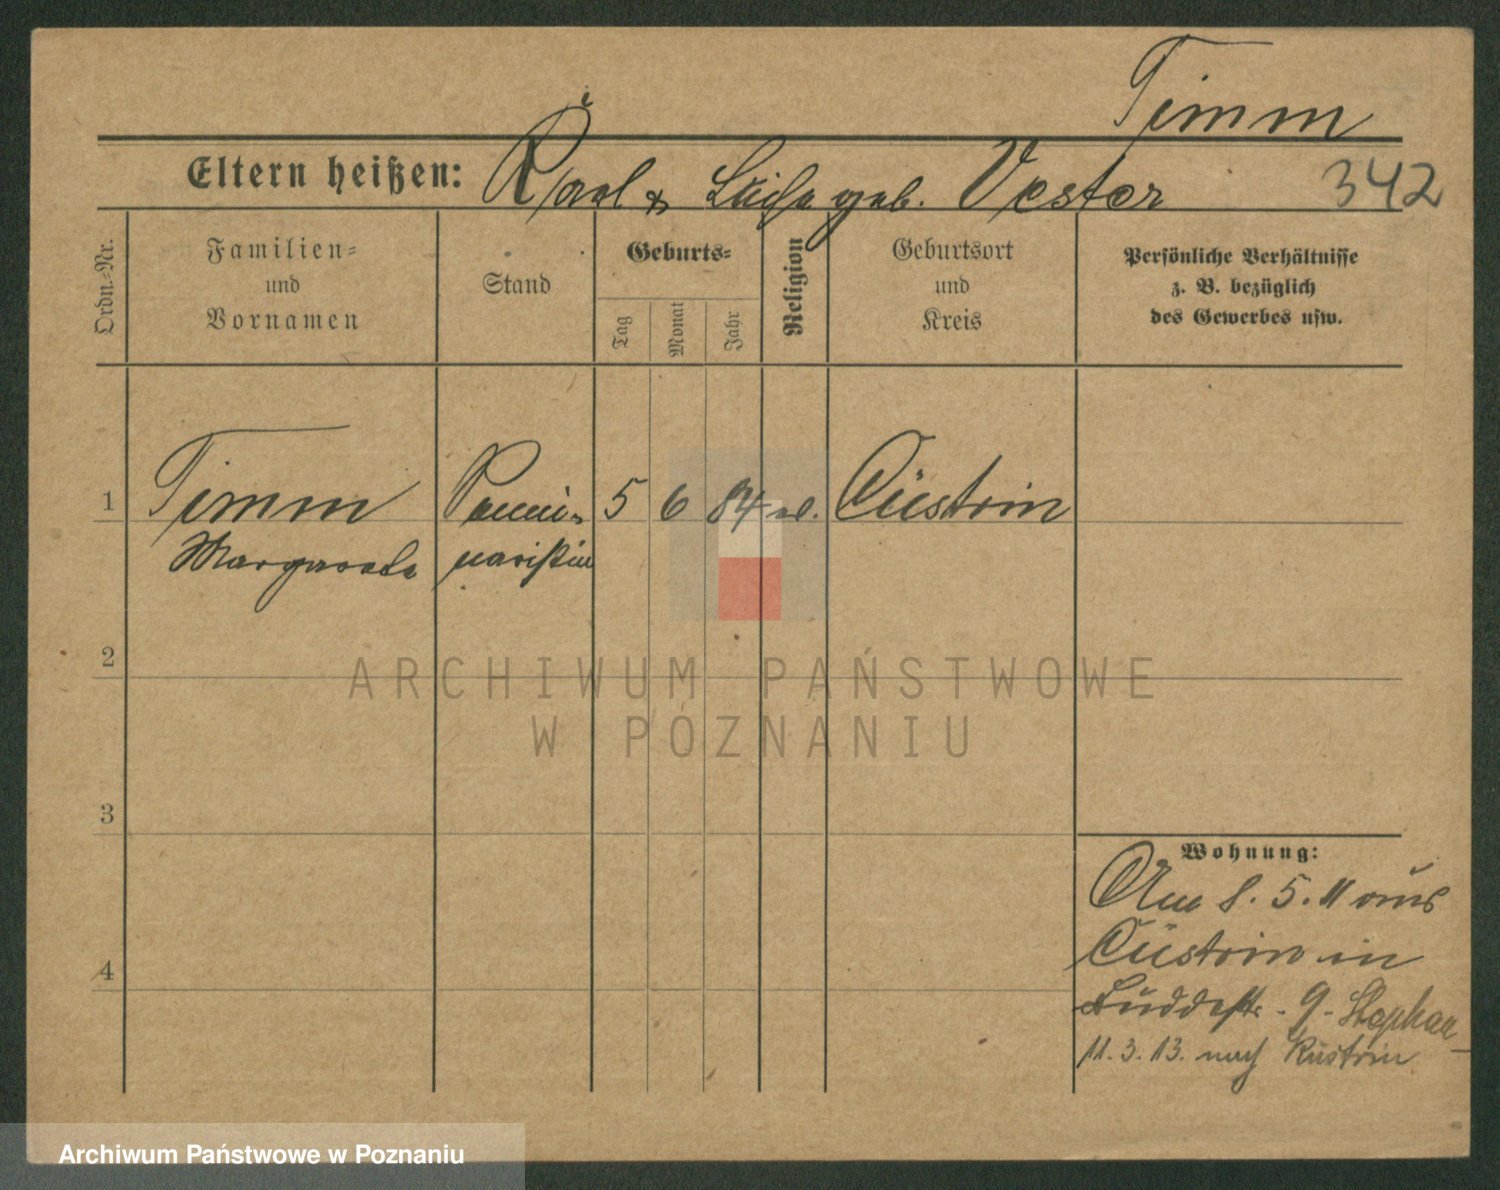 Timm
Eltern heißen: Karl & Luise geb. Vester 342
Ordn.-Nr.
Familien-
und
Vornamen
Stand
Geburts-
Tag
Monat
Jahr
Religion
Geburtsort
und
Kreis
Persönliche Verhältnisse
z. B. bezüglich
des Gewerbes usw.
1 Timm Semi- 5 6 84 ev. Cüstrin
Margarete naristin
2
ARCHIWUM PAŃSTWOWE
W POZNANIU
3
Wohnung:
Am 8. 5. 11 aus
Cüstrin in
4
9. Stephan
11. 3. 13. nach Küstrin
Archiwum Państwowe w Poznaniu